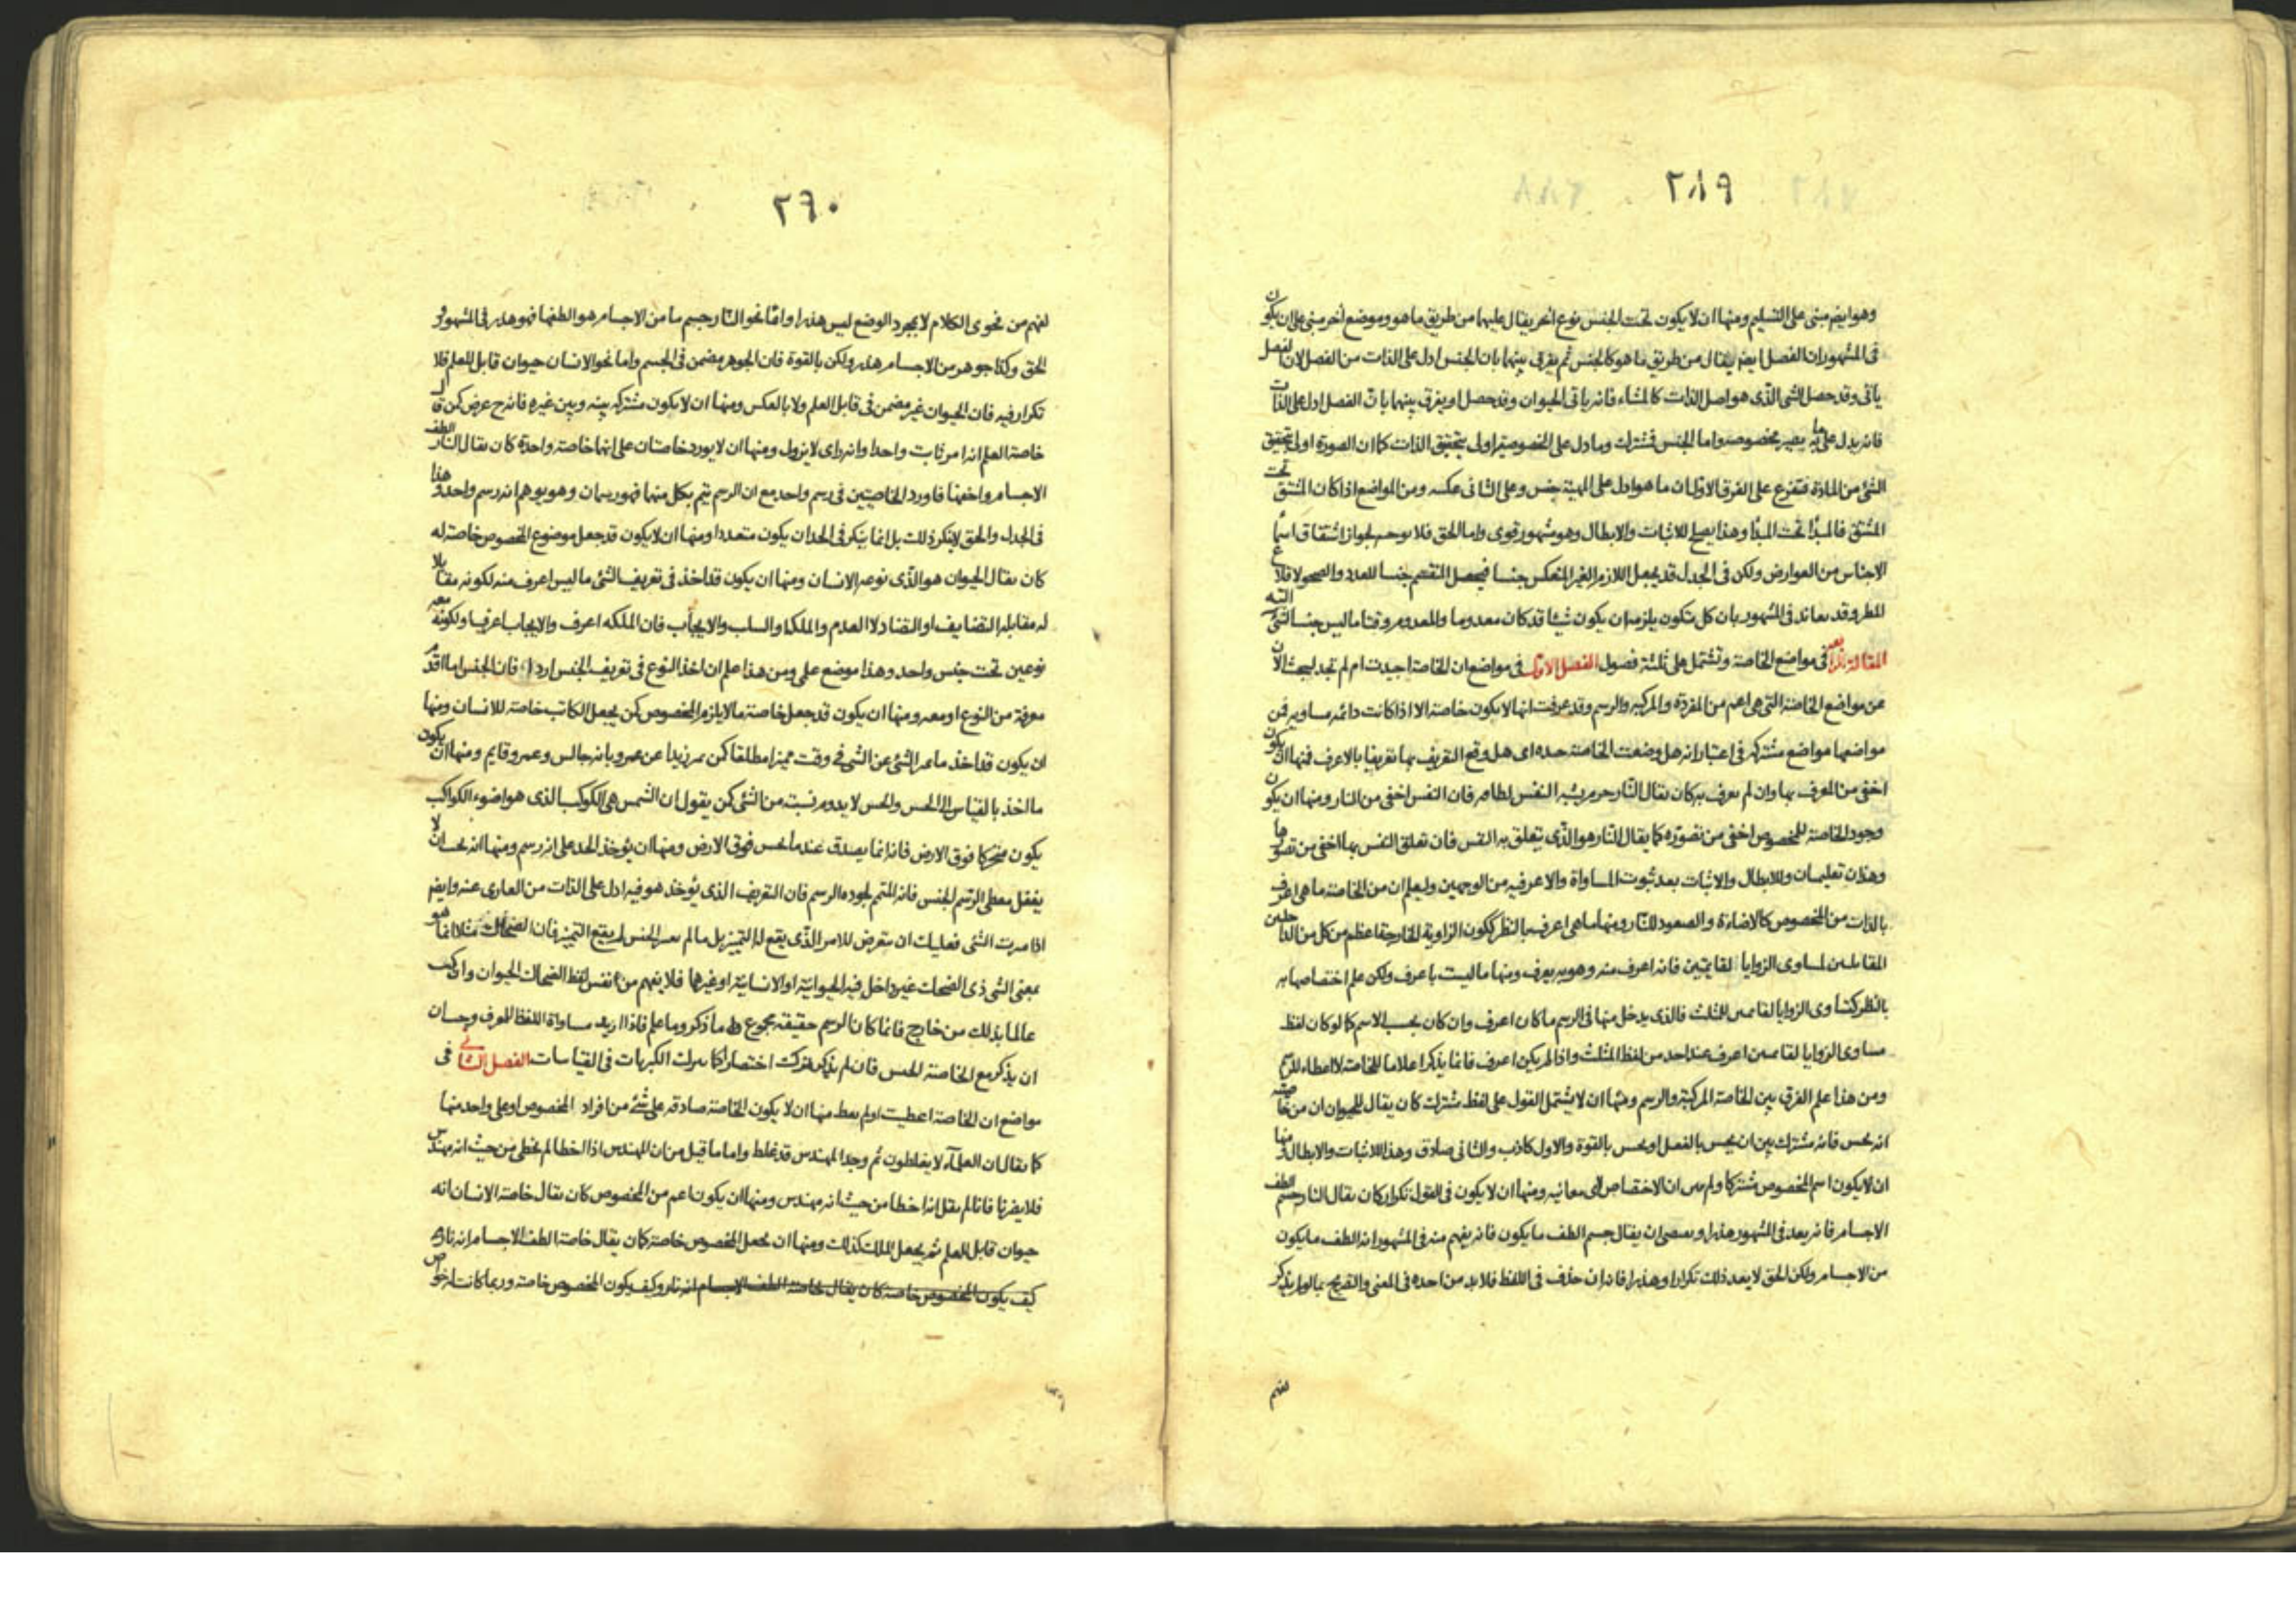 ٢٨٩
وهو ايضا مبنى على التسليم ومنها ان لا يكون تحت الجنس نوع اخر يقال عليها من طريق ما هو وموضع اخر مبنى على ان يكون
فى المشهور ان الفصل ايضا يقال من طريق ما هو كالجنس ثم يفرق بينهما بان الجنس ادل على الذات من الفصل لان الفصل
ياتى وقد حصل الشئ الذى هو اصل الذات كالمشاء فانه ياتى الحيوان وقد حصل او يفرق بينهما بان الفصل ادل على الذات
فانه يدل على ما به يصير مخصوصه واما الجنس فمشترك وما دل على الخصوصية اولى بتحقيق الذات كما ان الصورة اولى بتحقيق
الشئ من المادة فتفرع على الفرق الاول ان ما هو ادل على المهية جنس وعلى الثانى عكسه ومن المواضع اذا كان المشتق تحت
المشتق فالمبدأ تحت المبدأ وهذا يصلح للاثبات والابطال وهو مشهور قوى واما الحق فلا يوجبه لجواز اشتقاق اسماء
الاجناس من العوارض ولكن فى الجدل قد يجعل اللازم الغير المنعكس جنسا فيجعل المنقسم جنسا للعدد
وقد يعاند فى المشهور بان كل متكون يلزمه ان يكون شيئا قد كان معدوما والمعدوم وقتا ما ليس جنسا للشئ البتة
المقالة الرابعة فى مواضع الخاصة وتشتمل على ثلثة فصول الفصل الاول فى مواضع ان الخاصة اجيدت ام لم تجد لبحث الان
عن مواضع الخاصة التى هى اعم من المفردة والمركبه والرسم وقد عرفت انها لا يكون خاصة الا اذا كانت دائمه مساويه فمن
مواضعها مواضع مشتركه فى اعتبار انه هل وضعت الخاصة حده اى هل وقع التعريف بها تعريفا بالاعرف فمنها ان يكون
اخفى من المعرف بها وان لم يعرف به كان يقال النار جرم يشبه النفس فان النفس اخفى من النار ومنها ان يكون
وجود الخاصة للمخصوص اخفى من تصوره كما يقال النار هو الذى يتعلق به النفس فان تعلق النفس بها اخفى من تصورها
وهذان تعليمان وللابطال والاثبات بعد ثبوت المساواة والاعرفيه من الوجهين وليعلم ان من الخاصة ما هى اعرف
بالذات من المخصوص كالاضاءة والصعود للنار ومنها ما هى اعرف بالنظر ككون الزاوية الخارجة اعظم من كل من الداخلتين
المقابلتين لمساوى الزوايا لقائمتين فانه اعرف منه وهو به يعرف ومنها ما ليست باعرف ولكن علم اختصاصها به
بالنظر كتساوى الزوايا لقائمتين للمثلث فالذى يدخل منها فى الرسم ما كان اعرف وان كان بحسب الاسم كما لو كان لفظ
مساوى الزوايا لقائمتين اعرف عند احد من لفظ المثلث واذا لم يكن اعرف فانما يذكر اعلاما للخاصة لا اعطاء للرسم
ومن هذا علم الفرق بين الخاصة المركبة والرسم ومنها ان لا يشتمل القول على لفظ مشترك كان يقال للحيوان ان من خاصته
انه يحس فانه مشترك بين ان يحس بالفعل او يحس بالقوة والاول كاذب والثانى صادق وهذا للاثبات والابطال ومنها
ان لا يكون اسم المخصوص مشتركا ولم يبين ان الاختصاص لاى معانيه ومنها ان لا يكون فى القول تكرار كان يقال النار جسم الطف
الاجسام فانه يعد فى المشهور هذرا ان يقال جسم الطف ما يكون فانه يفهم منه فى المشهور انه الطف ما يكون
من الاجسام ولكن الحق لا يعد ذلك تكرارا وهذرا فانه ان حذف فى اللفظ فلا بد من اخذه فى المعنى والتصريح بما لو لم يذكر
لفهم
٢٩٠
لفهم من فحوى الكلام لا بمجرد الوضع ليس هذرا واما نحو النار جسم ما من الاجسام هو الطفها فهو هذر فى المشهور و
الحق وكذا جوهر من الاجسام هذر ولكن بالقوة فان الجوهر مضمن فى الجسم واما نحو الانسان حيوان قابل للعلم فلا
تكرار فيه فان الحيوان غير مضمن فى قابل العلم ولا بالعكس ومنها ان لا يكون مشتركه بينه وبين غيره فانه ح عرض كمن قال
خاصة العلم انه امر ثابت واحد وانه راى لا يزول ومنها ان لا يورد خاصتان على انها خاصة واحدة كان يقال النار الطف
الاجسام واخفها فاورد الخاصيتين فى رسم واحد مع ان الرسم يتم بكل منهما فهو رسمان وهو يوهم انه رسم واحد وهذا
فى الجدل والحق لا ينكر ذلك بل انما ينكر فى الحد ان يكون متعددا ومنها ان لا يكون قد جعل موضوع المخصوص خاصة له
كان يقال الحيوان هو الذى نوعه الانسان ومنها ان يكون قد اخذ فى تعريف الشئ ما ليس اعرف منه لكونه مقابلا
له مقابلة التضايف او التضاد لا العدم والملكة والسلب والايجاب فان الملكه اعرف والايجاب اعرف او لكونه معه
نوعين تحت جنس واحد وهذا موضع علمى ومن هذا علم ان اخذ النوع فى تعريف الجنس اردا فان الجنس اما اقدم
معرفة من النوع او معه ومنها ان يكون قد جعل خاصة ما لا يلزم المخصوص كمن يجعل الكاتب خاصة للانسان ومنها
ان يكون قد اخذ ما يميز الشئ عن الشئ فى وقت مميزا مطلقا كمن يميز زيدا عن عمرو بانه جالس وعمرو قايم ومنها ان يكون
ما اخذ بالقياس الى الحس والحس لا يدوم نسبته من الشئ كمن يقول ان الشمس هى الكوكب الذى هو اضوء الكواكب
يكون متحركا فوق الارض فانه انما يصدق عند ما يحس فوق الارض ومنها ان يؤخذ الحد على انه رسم ومنها انه يجب ان لا
يغفل معطى الرسم الجنس فانه المتمم لجوده الرسم فان التعريف الذى يؤخذ هو فيه ادل على الذات من العارى عنه وايضا
اذا ميزت الشئ فعليك ان تتعرض للامر الذى يقع له التمييز بل ما لم يميز الجنس لم يقع التمييز فان الضحاك مثلا انما هو
بمعنى الشئ ذى الضحك غير داخل فيه الحيوانية او الانسانية او غيرها فلا يفهم من نفس لفظ الضحاك الحيوان وان كنت
عالما بذلك من خارج فانما كان الرسم حقيقته مجموع ما ذكر وما علم فاذا اريد مساواة اللفظ للمعرف وجب ان
ان يذكر مع الخاصة الجنس فان لم يذكر فترك اختصارا كما يترك الكبريات فى القياسات الفصل الثانى فى
مواضع ان الخاصة اعطيت او لم يعط منها ان لا يكون الخاصة صادقه على شئ من افراد المخصوص او على واحد منها
كما يقال ان العلماء لا يغلطون ثم وجد المهندس قد غلط واما ما قيل من ان المهندس اذا اخطا لم يخطئ من حيث انه مهندس
فلا يضرنا فانا لم نقل انه اخطا من حيث انه مهندس ومنها ان يكون اعم من المخصوص كان يقال خاصة الانسان انه
حيوان قابل للعلم ثم يجعل الملك كذلك ومنها ان يجعل المخصوص خاصة كان يقال خاصة الطف الاجسام انه نار و
كيف يكون المخصوص خاصة كان يقال خاصة الطف الاجسام انه نار وكيف يكون المخصوص خاصة وربما كانت له خواص